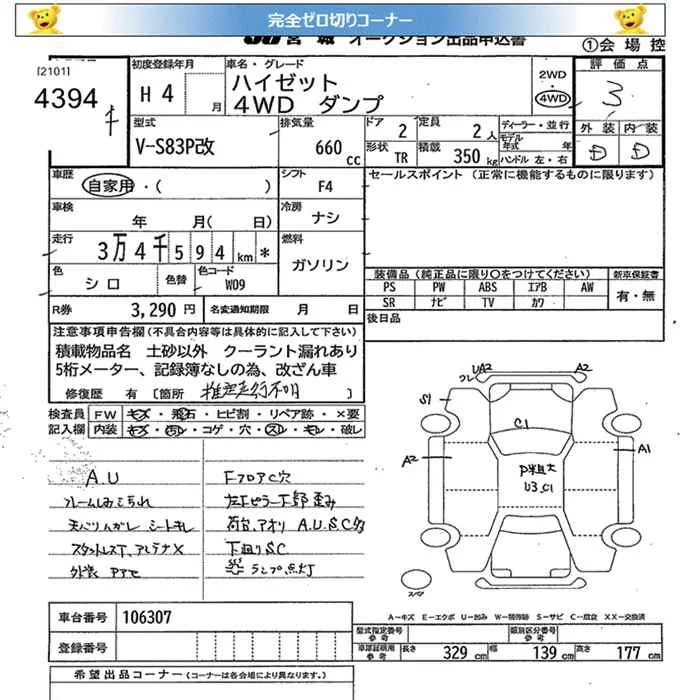 完全ゼロ切りコーナー
JU 宮城 オークション出品申込書
①会場控
[2101]
4394
初度登録年月
H 4 月
車名・グレード
ハイゼット
4WD ダンプ
2WD
4WD
評価点
3
外装 内装
D D
型式
V-S83P改
排気量
660 cc
ドア 2
定員 2 人
形状 TR
積載 350 kg
ディーラー・並行
モデル年式 年
ハンドル 左・右
車歴
自家用・( )
シフト
F4
セールスポイント (正常に機能するものに限ります)
車検
年 月( 日)
冷房
ナシ
走行
3万4千594 km *
燃料
ガソリン
色
シロ
色替
色コード
W09
装備品 (純正品に限り〇をつけてください)
PS PW ABS エアB AW
SR ナビ TV カワ
新車保証書
有・無
R券 3,290 円
名変通知期限 月 日
後日品
注意事項申告欄 (不具合内容等は具体的に記入して下さい)
積載物品名 土砂以外 クーラント漏れあり
5桁メーター、記録簿なしの為、改ざん車
修復歴 有 [箇所 推定走行不明 ]
検査員 FW キズ・飛石・ヒビ割・リペア跡・×要
記入欄 内装 キズ・汚レ・コゲ・穴・スレ・キレ・破レ
A.U
FフロアC穴
左Fピラー下部歪み
シートキレ
荷台、アオリ A.U.S.C多
スタットレスT、アンテナX
下廻りS.C
ランプ点灯
UA2
A2
クレ
S1
C1
A2
A1
U3.C1
スペア
車台番号 106307
登録番号
A=キズ E=エクボ U=凹み W=補修跡 S=サビ C=腐食 XX=交換済
型式指定番号
参考
類別区分番号
参考
車課証明用
参考
長さ 329 cm
幅 139 cm
高さ 177 cm
希望出品コーナー (コーナーは各会場により異なります。)